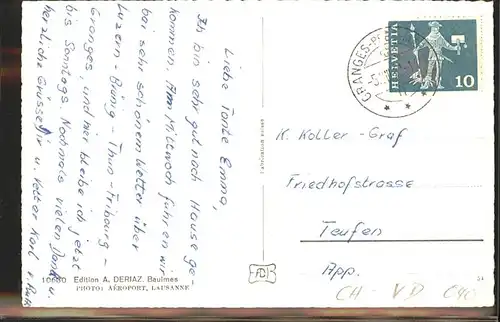 Liebe Tante Emma,
Ich bin sehr gut nach Hause ge-
kommen. Am Mittwoch fuhren wir
bei sehr schönem Wetter über
Luzern - Brünig - Thun - Fribourg -
Granges, und wir bleibe ich jetzt
bis Sonntags. Nochmals vielen Dank u.
herzliche Grüsse Dir u. Vetter Karl v.
HELVETIA
10
GRANGES-
K. Koller-Graf
Friedhofstrasse
Teufen
App.
10680 Edition A. DERIAZ. Baulmes
PHOTO: AÉROPORT, LAUSANNE
CH - VD